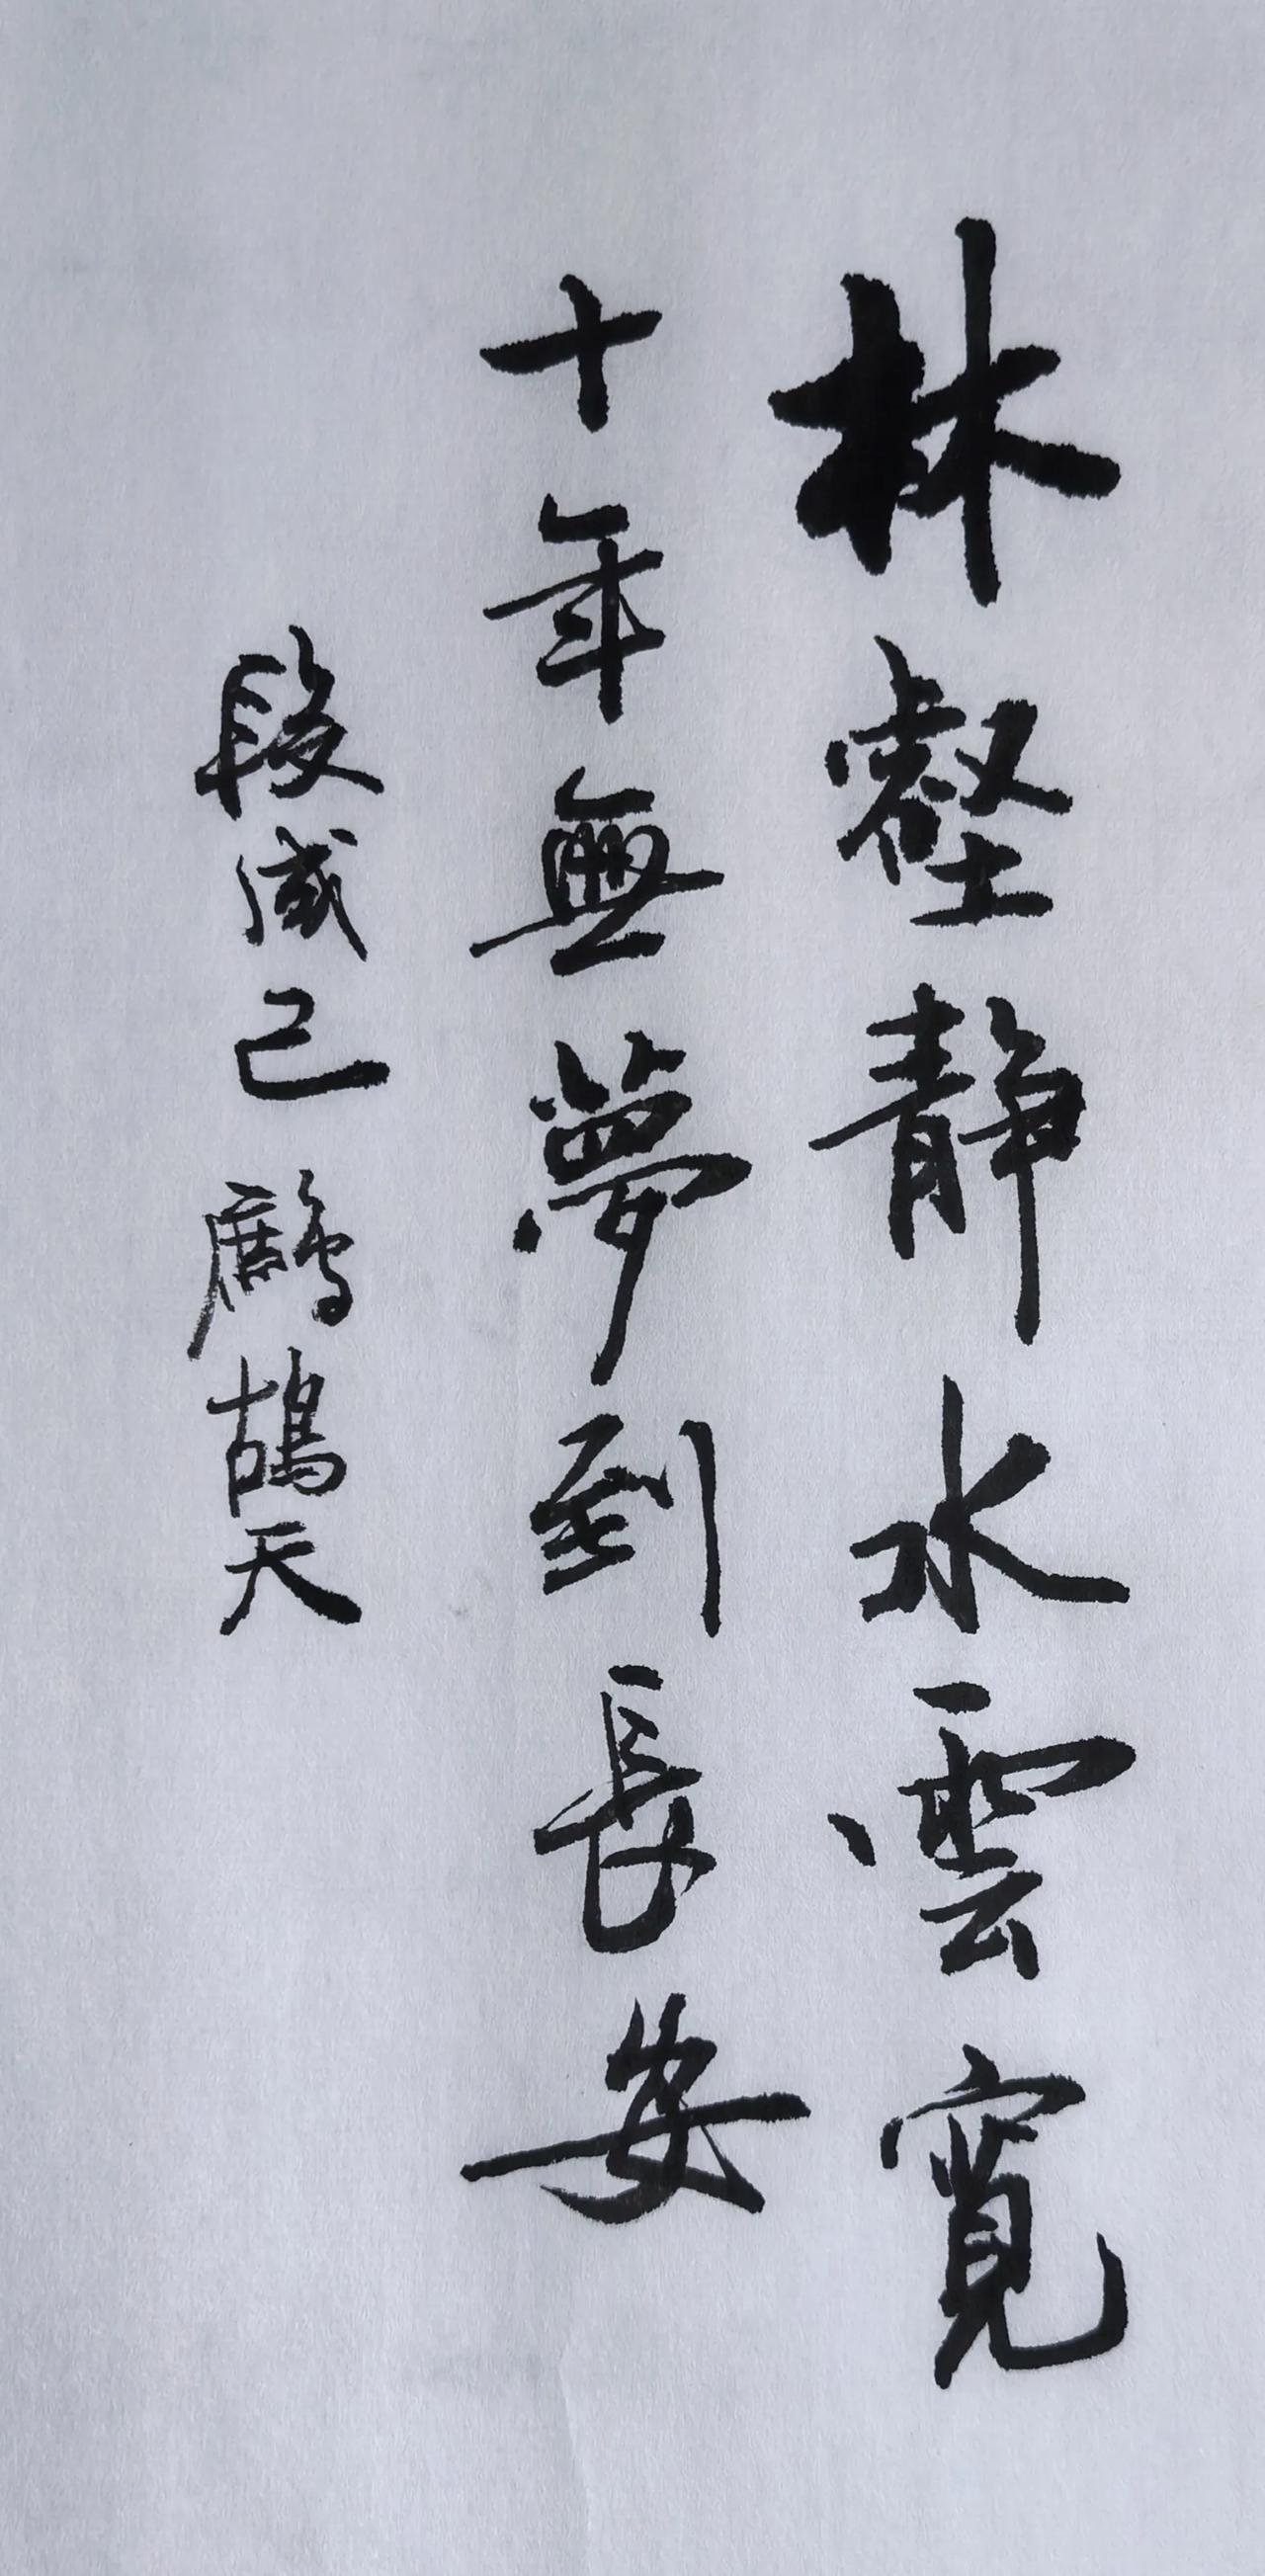 林壑靜水雲寬
十年無夢到長安
段成己鷓鴣天